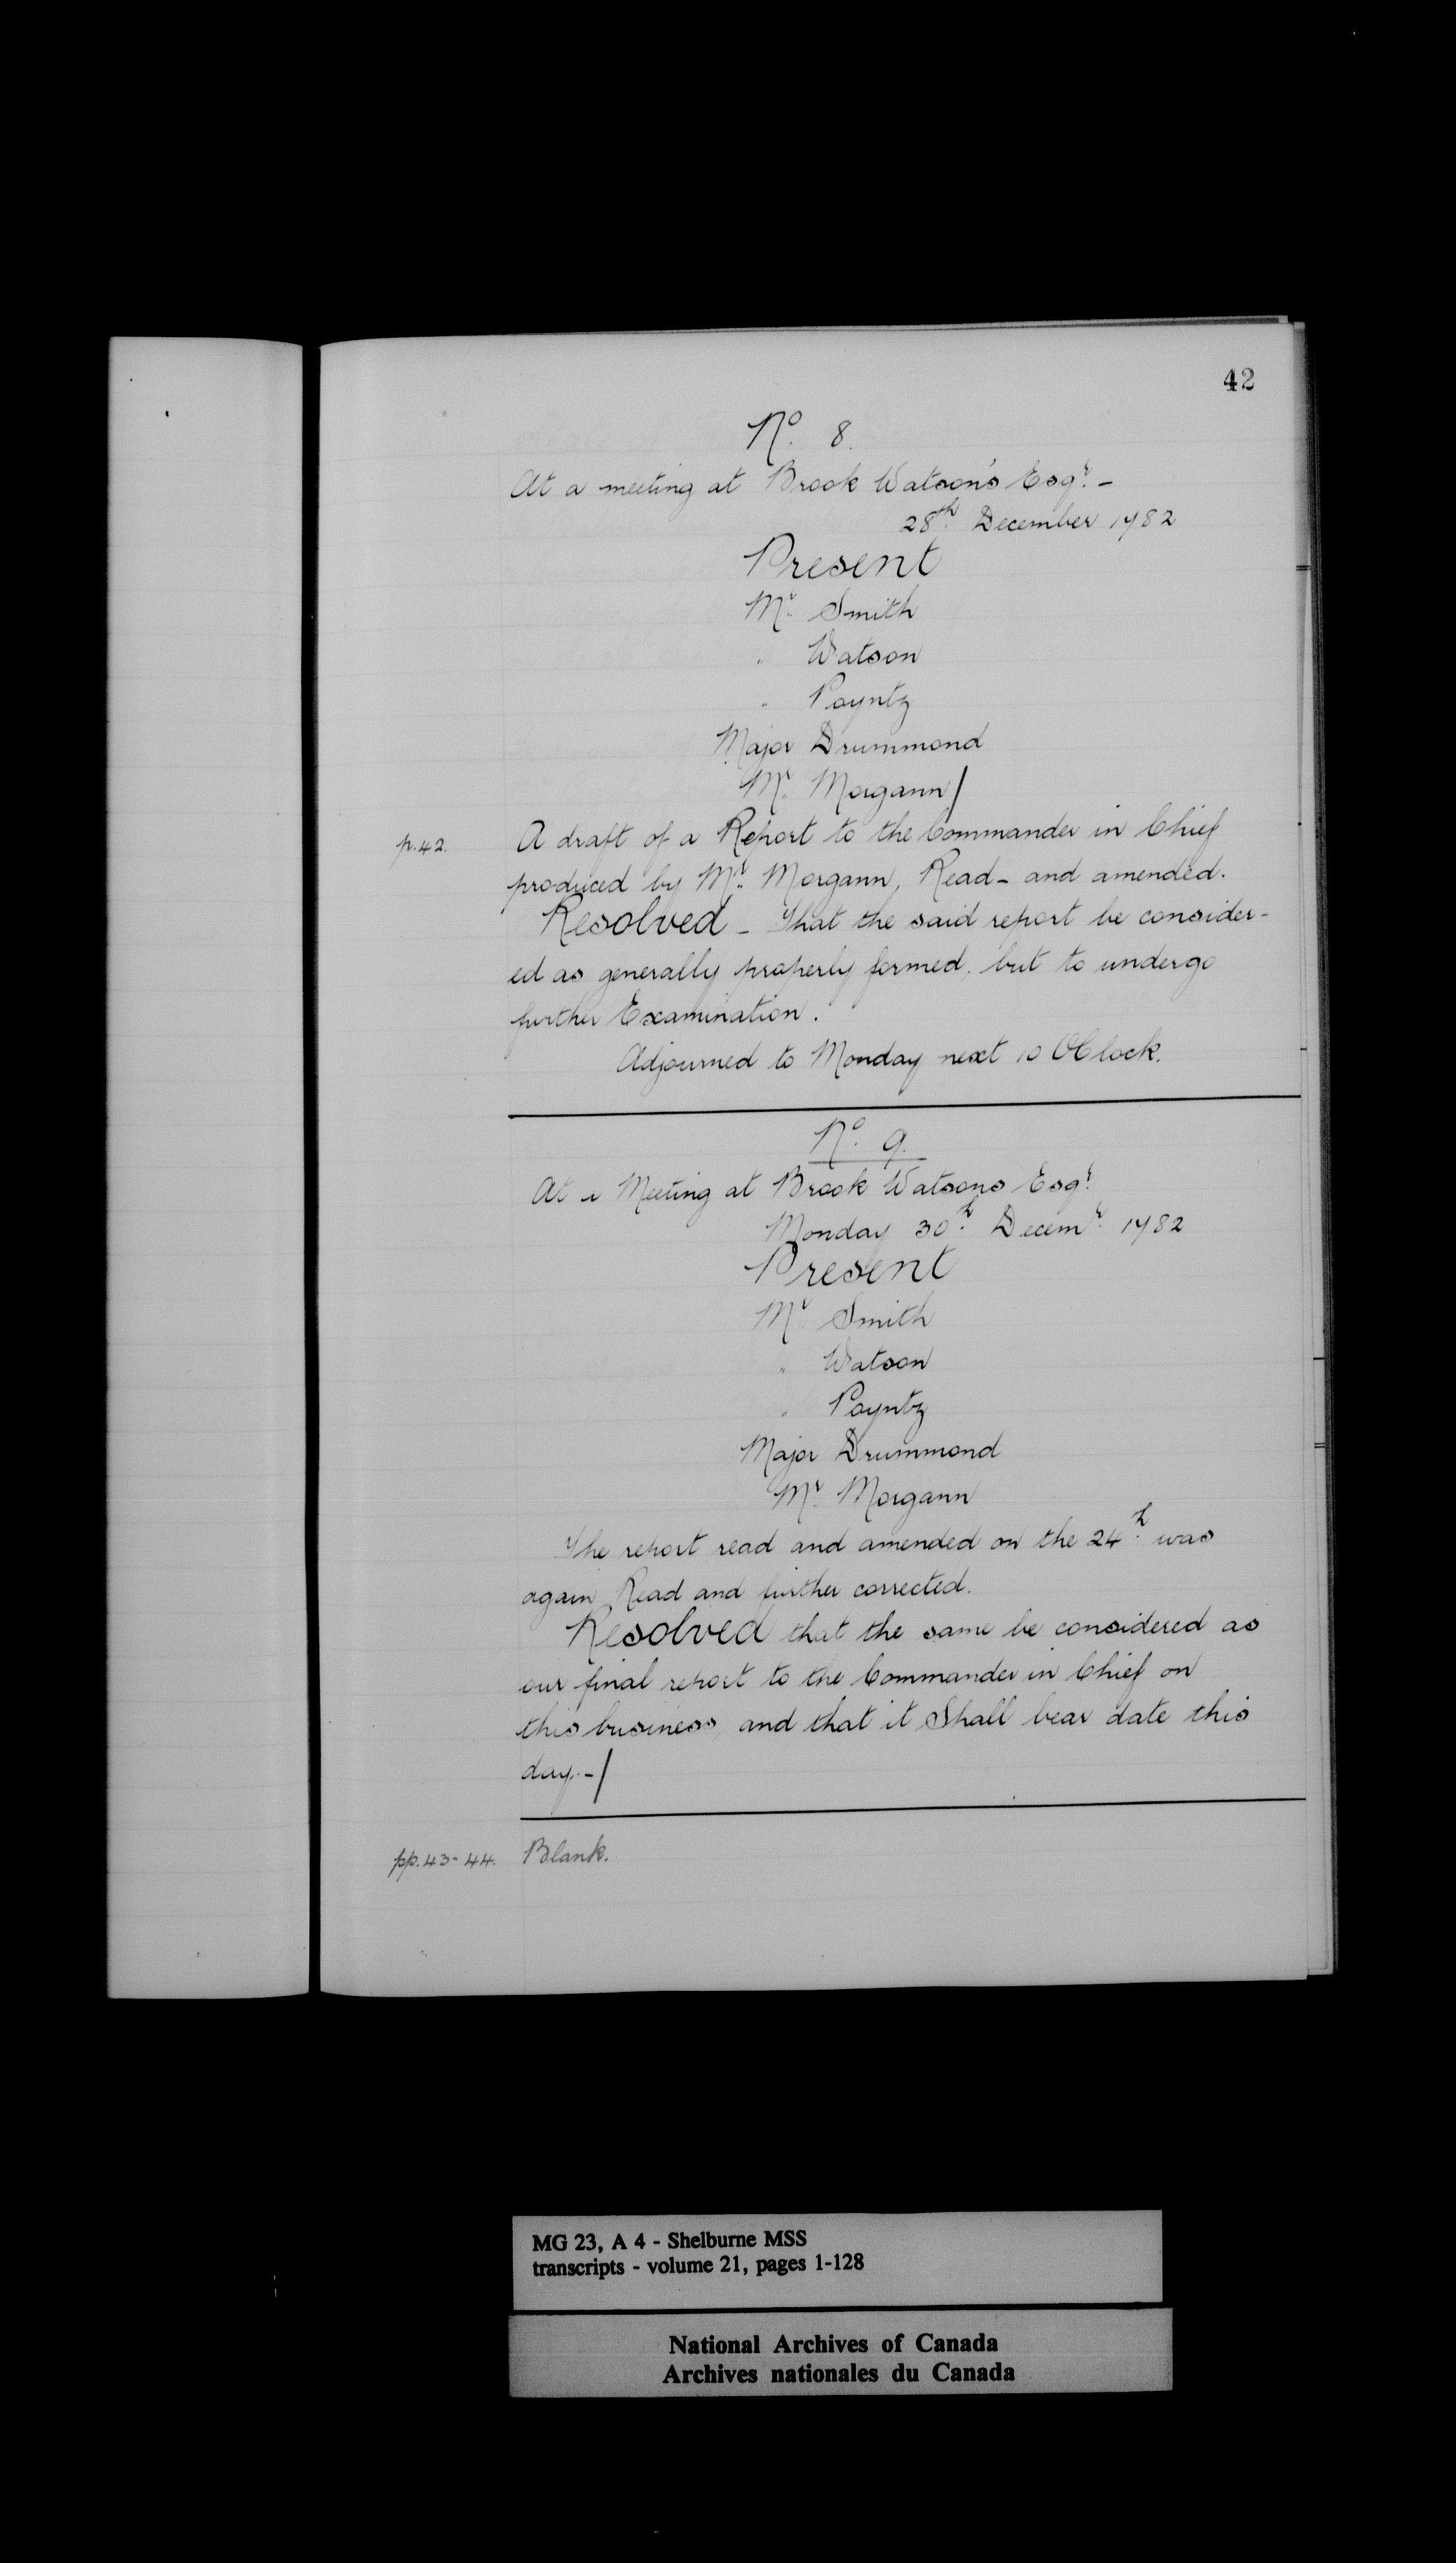 42
No. 8.
At a meeting at Brook Watson's Esqr. -
28th. December 1782
Present
Mr. Smith
" Watson
" Poyntz
Major Drummond
Mr. Morgann/
p.42. A draft of a Report to the Commander in Chief
produced by Mr. Morgann, Read - and amended.
Resolved - That the said report be consider-
ed as generally properly formed, but to undergo
further Examination.
Adjourned to Monday next 10 OClock.
No. 9.
At a Meeting at Brook Watsons Esqr.
Monday 30th. Decemr. 1782
Present
Mr. Smith
" Watson
" Poyntz
Major Drummond
Mr. Morgann
The report read and amended on the 24th. was
again Read and further corrected.
Resolved that the same be considered as
our final report to the Commander in Chief on
this business, and that it Shall bear date this
day.-/
pp.43-44. Blank.
MG 23, A 4 - Shelburne MSS
transcripts - volume 21, pages 1-128
National Archives of Canada
Archives nationales du Canada